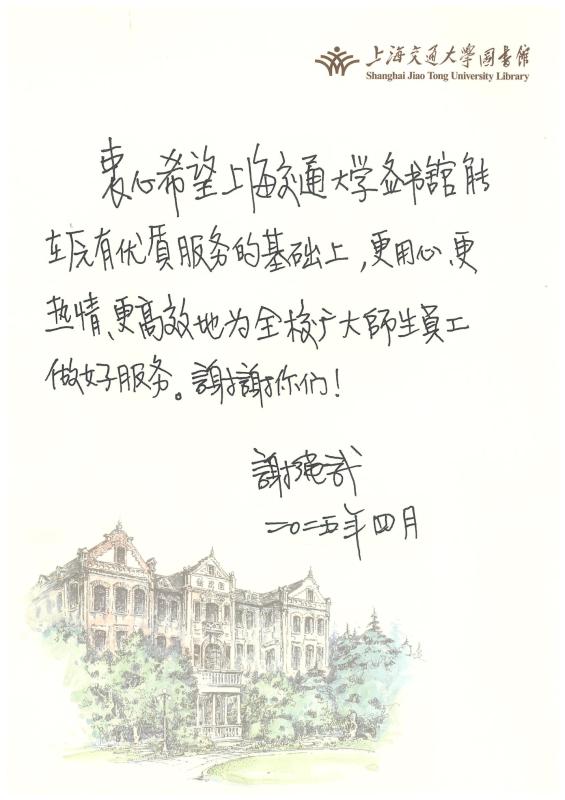 上海交通大学图书馆
Shanghai Jiao Tong University Library
衷心希望上海交通大学图书馆能
在原有优质服务的基础上，更用心、更
热情、更高效地为全校广大師生員工
做好服务。謝謝你们！
二〇二五年四月